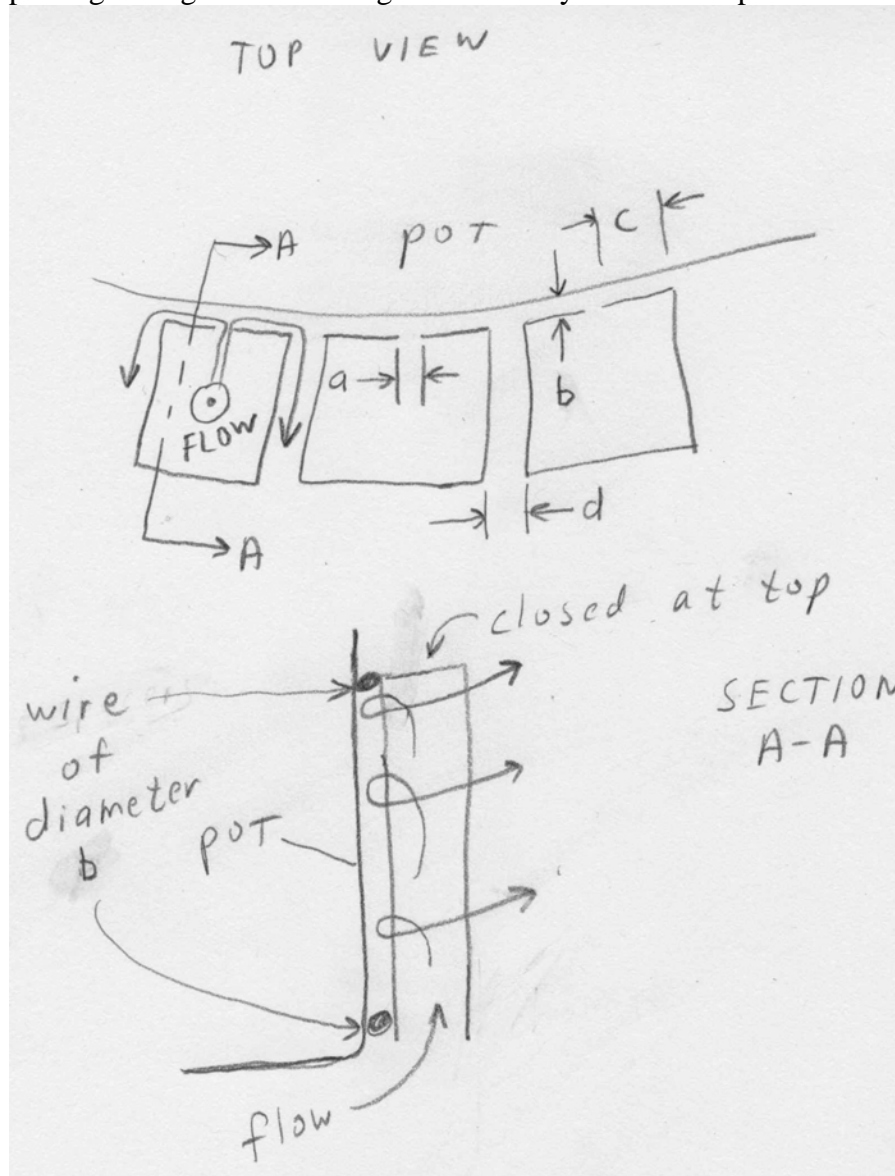 TOP VIEW
A
POT
C
a
b
FLOW
d
A
closed at top
wire
of
diameter
b
SECTION
A-A
POT
flow